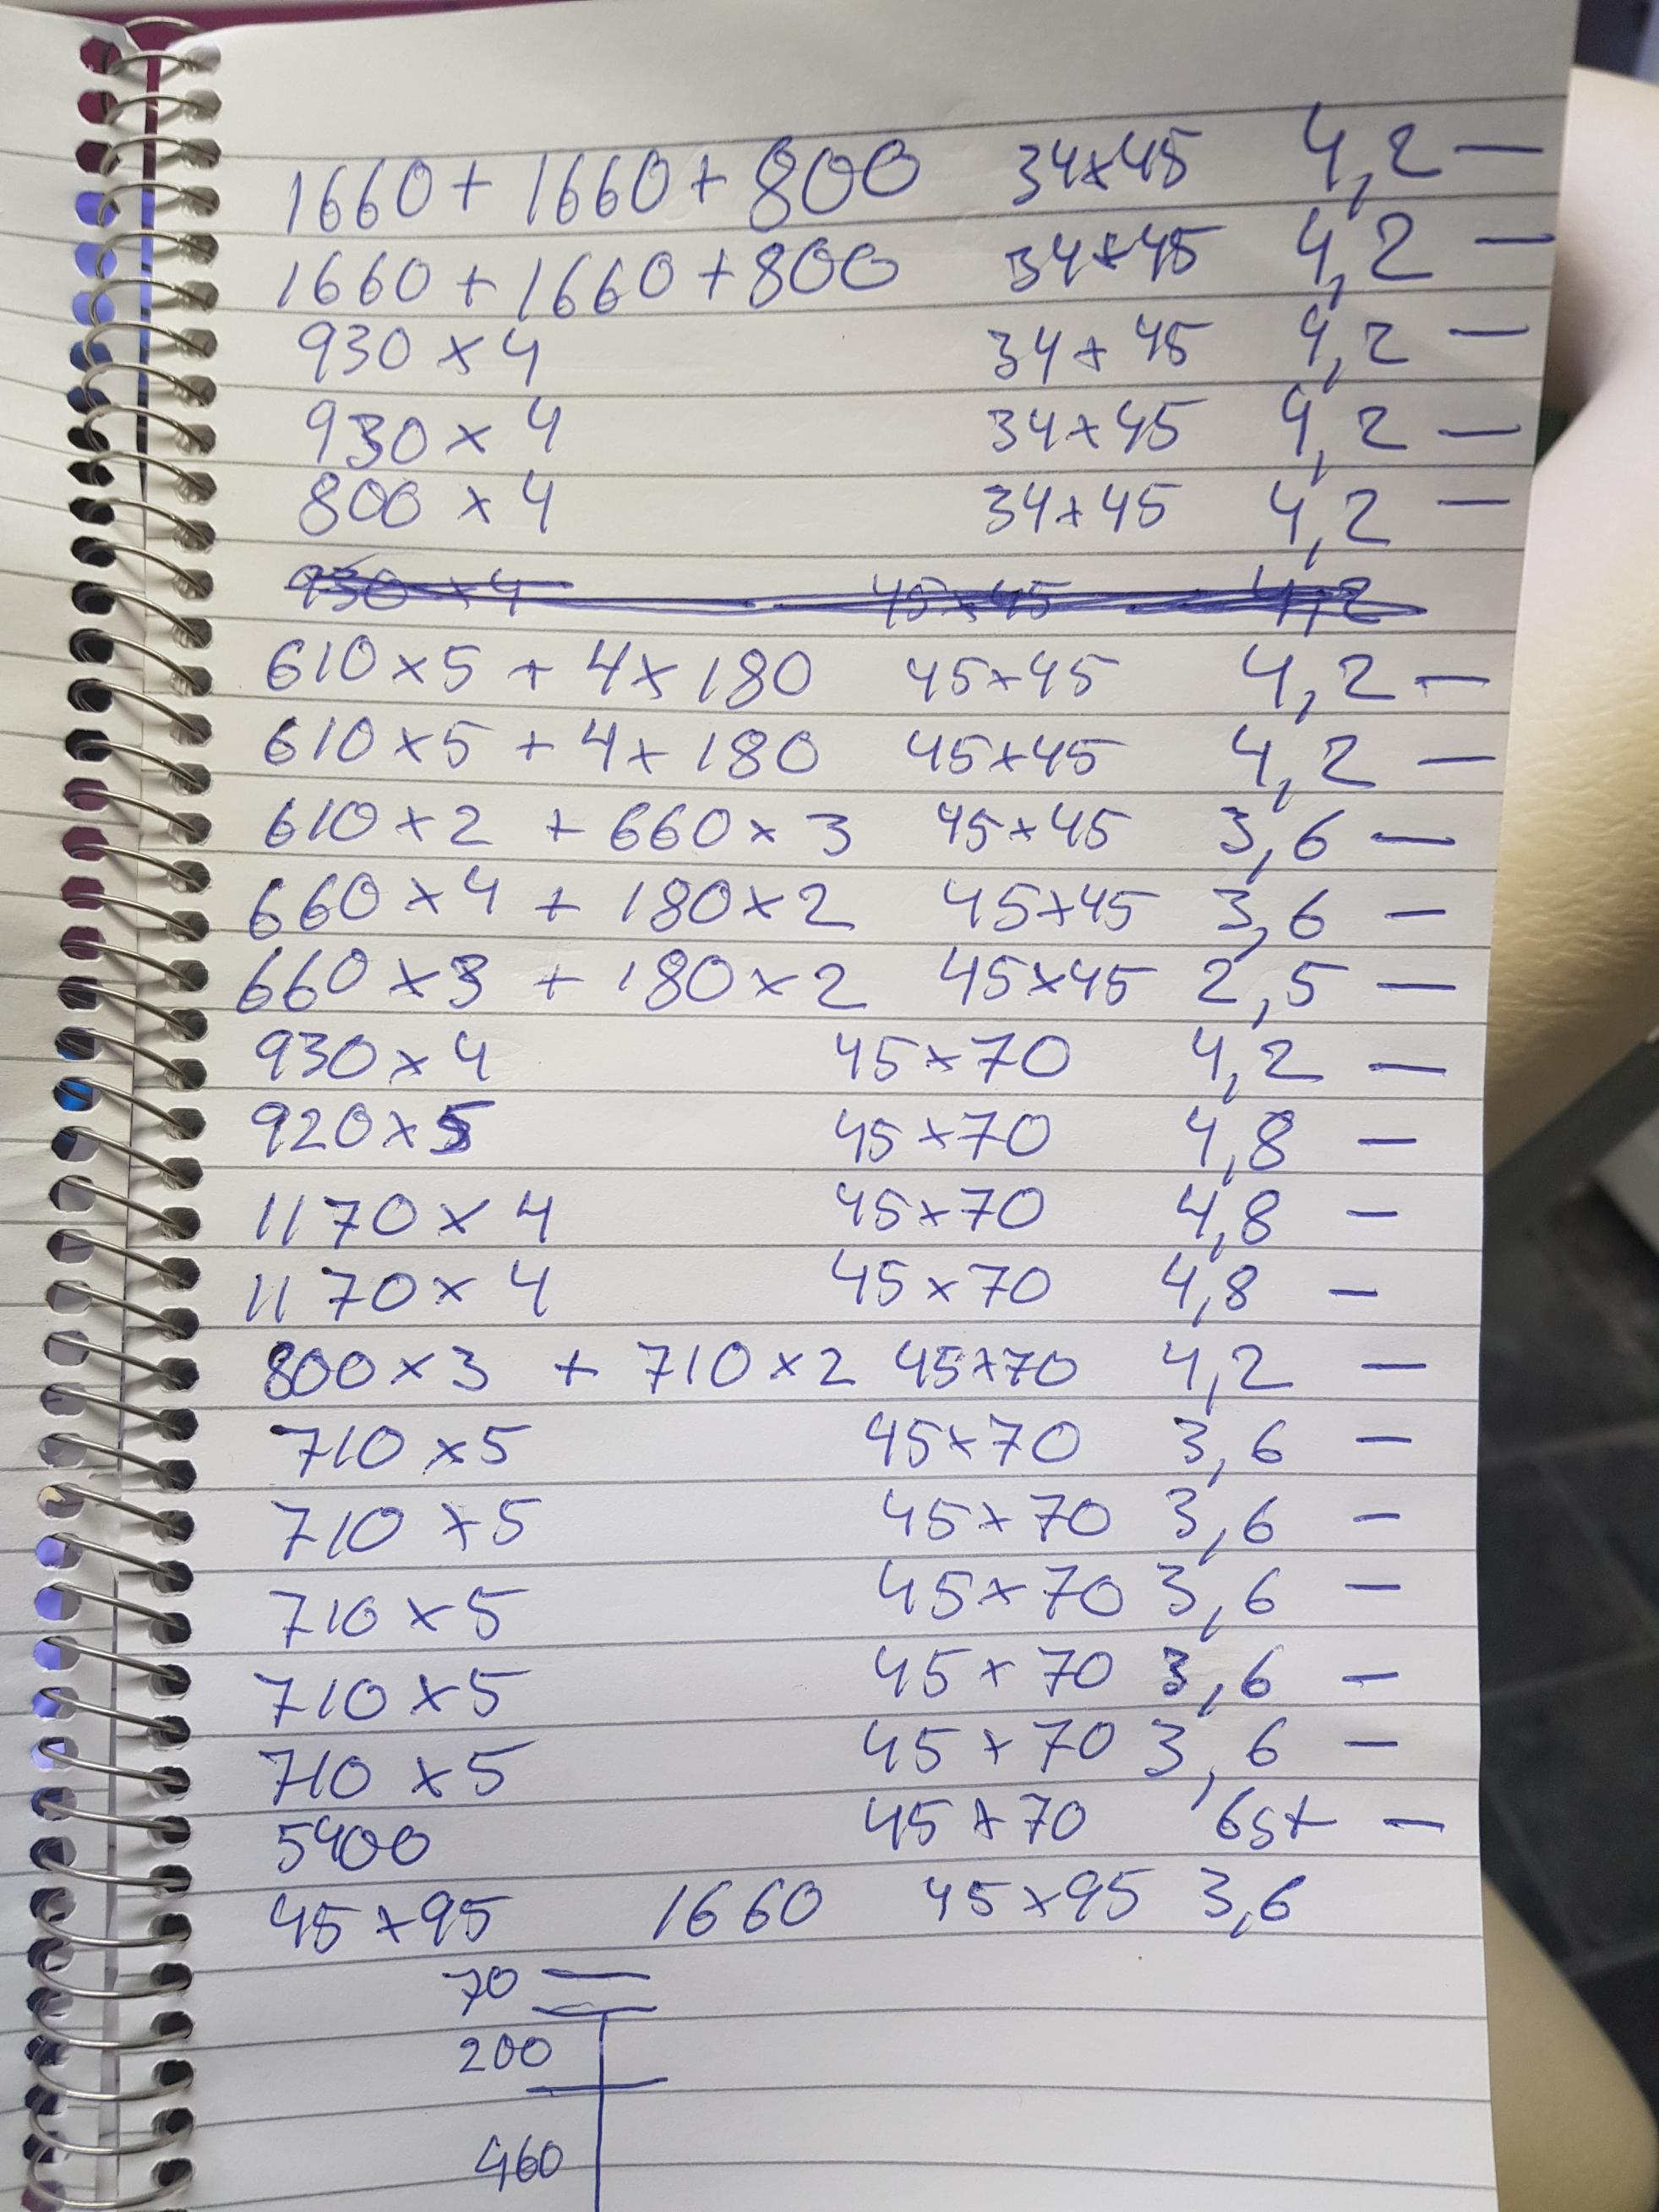 1660 + 1660 + 800 34x45 4,2 —
1660 + 1660 + 800 34x45 4,2 —
930 x 4 34x45 4,2 —
930 x 4 34x45 4,2 —
800 x 4 34x45 4,2 —
930 x 4 45x45 4,2
610 x 5 + 4 x 180 45x45 4,2 —
610 x 5 + 4 x 180 45x45 4,2 —
610 x 2 + 660 x 3 45x45 3,6 —
660 x 4 + 180 x 2 45x45 3,6 —
660 x 3 + 180 x 2 45x45 2,5 —
930 x 4 45x70 4,2 —
920 x 5 45x70 4,8 —
1170 x 4 45x70 4,8 —
1170 x 4 45x70 4,8 —
800 x 3 + 710 x 2 45x70 4,2 —
710 x 5 45x70 3,6 —
710 x 5 45x70 3,6 —
710 x 5 45x70 3,6 —
710 x 5 45x70 3,6 —
710 x 5 45x70 3,6 —
5400 45x70 6st —
45x95 1660 45x95 3,6
70
200
460